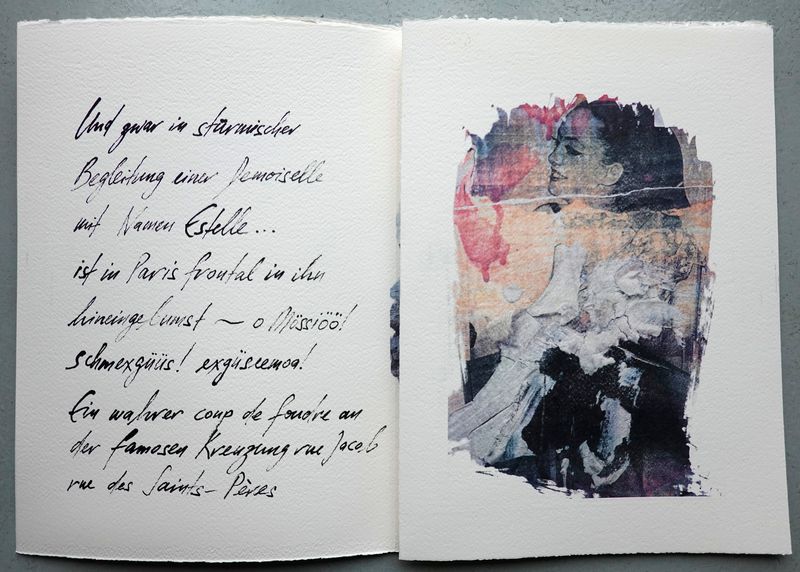 Und zwar in stürmischer
Begleitung einer Demoiselle
mit Namen Estelle...
ist in Paris frontal in ihn
hineingebumst – o Mössiöö!
schmexgüüs! exgüseemoa!
Ein wahrer coup de foudre an
der famosen Kreuzung rue Jacob
rue des Saints-Pères